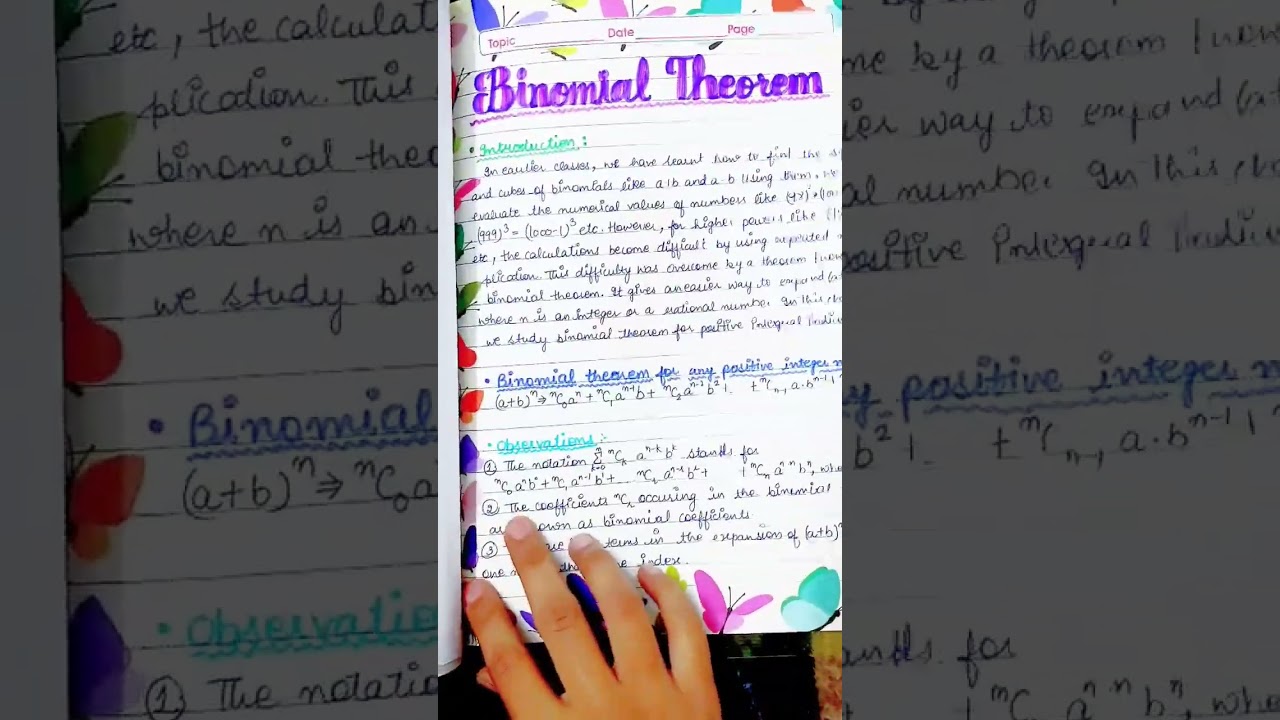 Topic Date Page
Binomial Theorem
• Introduction :
In earlier classes, we have learnt how to find the
and cubes of binomials like a+b and a-b Using them, we
evaluate the numerical values of numbers like
(999)³ = (1000-1)³ etc. However, for higher powers like
etc, the calculations become difficult by using repeated
plication. This difficulty was overcome by a theorem known
binomial theorem. It gives an easier way to expand
where n is an integer or a rational number. In this
we study binomial theorem for positive Integral
• Binomial theorem for any positive integer n
(a+b)ⁿ ⇒ ⁿC₀aⁿ + ⁿC₁aⁿ⁻¹b + ⁿC₂aⁿ⁻²b² + ⁿCₙ₋₁ a·bⁿ⁻¹
• Observations :-
① The notation Σ ⁿCₖ aⁿ⁻ᵏ bᵏ stands for
ⁿC₀aⁿb⁰ + ⁿC₁aⁿ⁻¹b¹ + + ⁿCₙ aⁿ⁻ⁿ bⁿ,
② The coefficients ⁿCᵣ occuring in the binomial
as binomial coefficients.
③ terms in the expansion of (a+b)
one index.